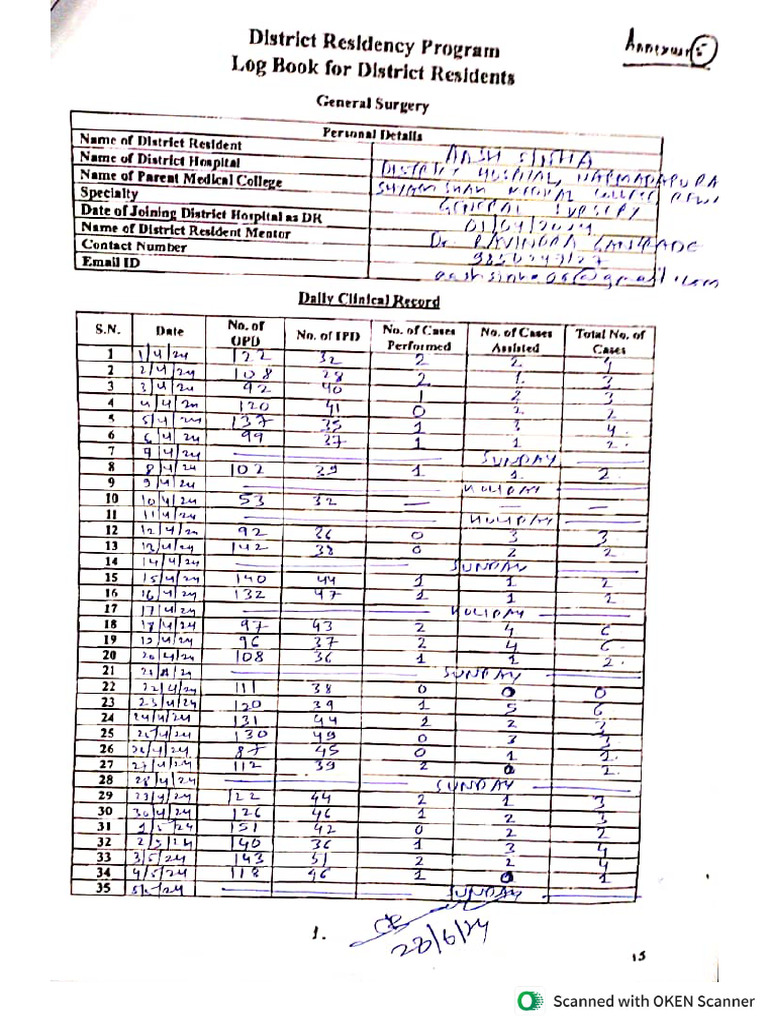 District Residency Program
Annexure 5
Log Book for District Residents
General Surgery
Personal Details
Name of District Resident AASH SINHA
Name of District Hospital DISTRICT HOSPITAL, NARMADAPURA
Name of Parent Medical College SHYAM SHAH MEDICAL COLLEGE REWA
Specialty GENERAL SURGERY
Date of Joining District Hospital as DR 01/04/2024
Name of District Resident Mentor Dr. RAVINDRA
Contact Number
Email ID @gmail.com
Daily Clinical Record
S.N. Date No. of OPD No. of IPD No. of Cases Performed No. of Cases Assisted Total No. of Cases
1 1/4/24 122 32 2 2 4
2 2/4/24 108 28 2 1 3
3 3/4/24 92 40 1 2 3
4 4/4/24 120 41 0 2 2
5 5/4/24 137 35 1 3 4
6 6/4/24 99 37 1 1 2
7 7/4/24 SUNDAY
8 8/4/24 102 39 1 1 2
9 9/4/24 HOLIDAY
10 10/4/24 53 32 — — —
11 11/4/24 HOLIDAY
12 12/4/24 92 36 0 3 3
13 13/4/24 142 38 0 2 2
14 14/4/24 SUNDAY
15 15/4/24 140 44 1 1 2
16 16/4/24 132 47 1 1 2
17 17/4/24 HOLIDAY
18 18/4/24 97 43 2 4 6
19 19/4/24 96 37 2 4 6
20 20/4/24 108 36 1 1 2
21 SUNDAY
22 22/4/24 111 38 0 0 0
23 23/4/24 120 39 1 5 6
24 24/4/24 131 44 2 3
25 25/4/24 130 49 0 3 3
26 26/4/24 87 45 0 1 2
27 27/4/24 112 39 2 0 2
28 28/4/24 SUNDAY
29 29/4/24 122 44 2 1 3
30 30/4/24 126 46 1 2 3
31 1/5/24 151 42 0 2 2
32 2/5/24 140 36 1 3 4
33 3/5/24 143 51 2 2 4
34 4/5/24 118 46 1 0 1
35 5/5/24 SUNDAY
1.
28/6/24
15
Scanned with OKEN Scanner